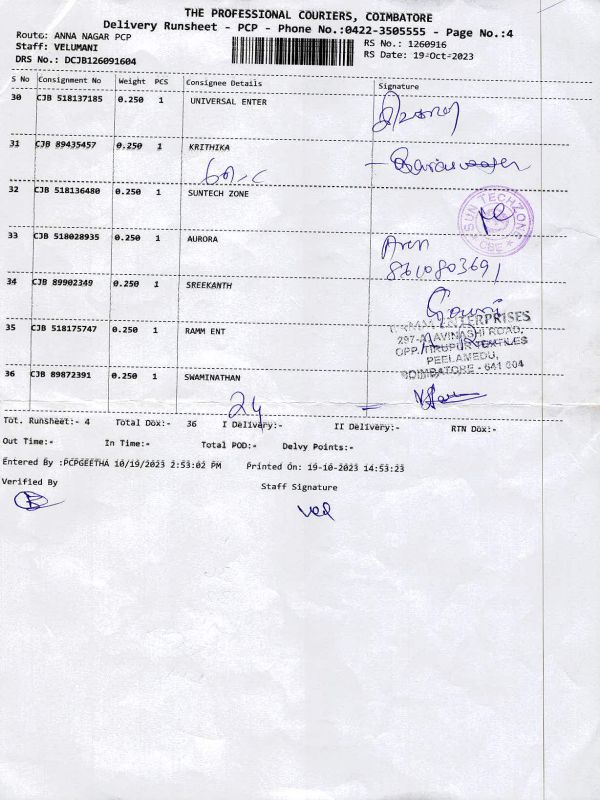 THE PROFESSIONAL COURIERS, COIMBATORE
Delivery Runsheet - PCP - Phone No.:0422-3505555 - Page No.:4
Route: ANNA NAGAR PCP RS No.: 1260916
Staff: VELUMANI RS Date: 19-Oct-2023
DRS No.: DCJB126091604
S No Consignment No Weight PCS Consignee Details Signature
30 CJB 518137185 0.250 1 UNIVERSAL ENTER
31 CJB 89435457 0.250 1 KRITHIKA
32 CJB 518136480 0.250 1 SUNTECH ZONE
SUN TECHZONE
* CBE *
33 CJB 518028935 0.250 1 AURORA
8610803691
34 CJB 89902349 0.250 1 SREEKANTH
Gowri
ENTERPRISES
35 CJB 518175747 0.250 1 RAMM ENT
297-A, AVINASHI ROAD,
OPP. TIRUPUR TEXTILES
PEELAMEDU,
COIMBATORE - 641 004
36 CJB 89872391 0.250 1 SWAMINATHAN
24
Tot. Runsheet:- 4 Total Dox:- 36 I Delivery:- II Delivery:- RTN Dox:-
Out Time:- In Time:- Total POD:- Delvy Points:-
Entered By :PCPGEETHA 10/19/2023 2:53:02 PM Printed On: 19-10-2023 14:53:23
Verified By Staff Signature